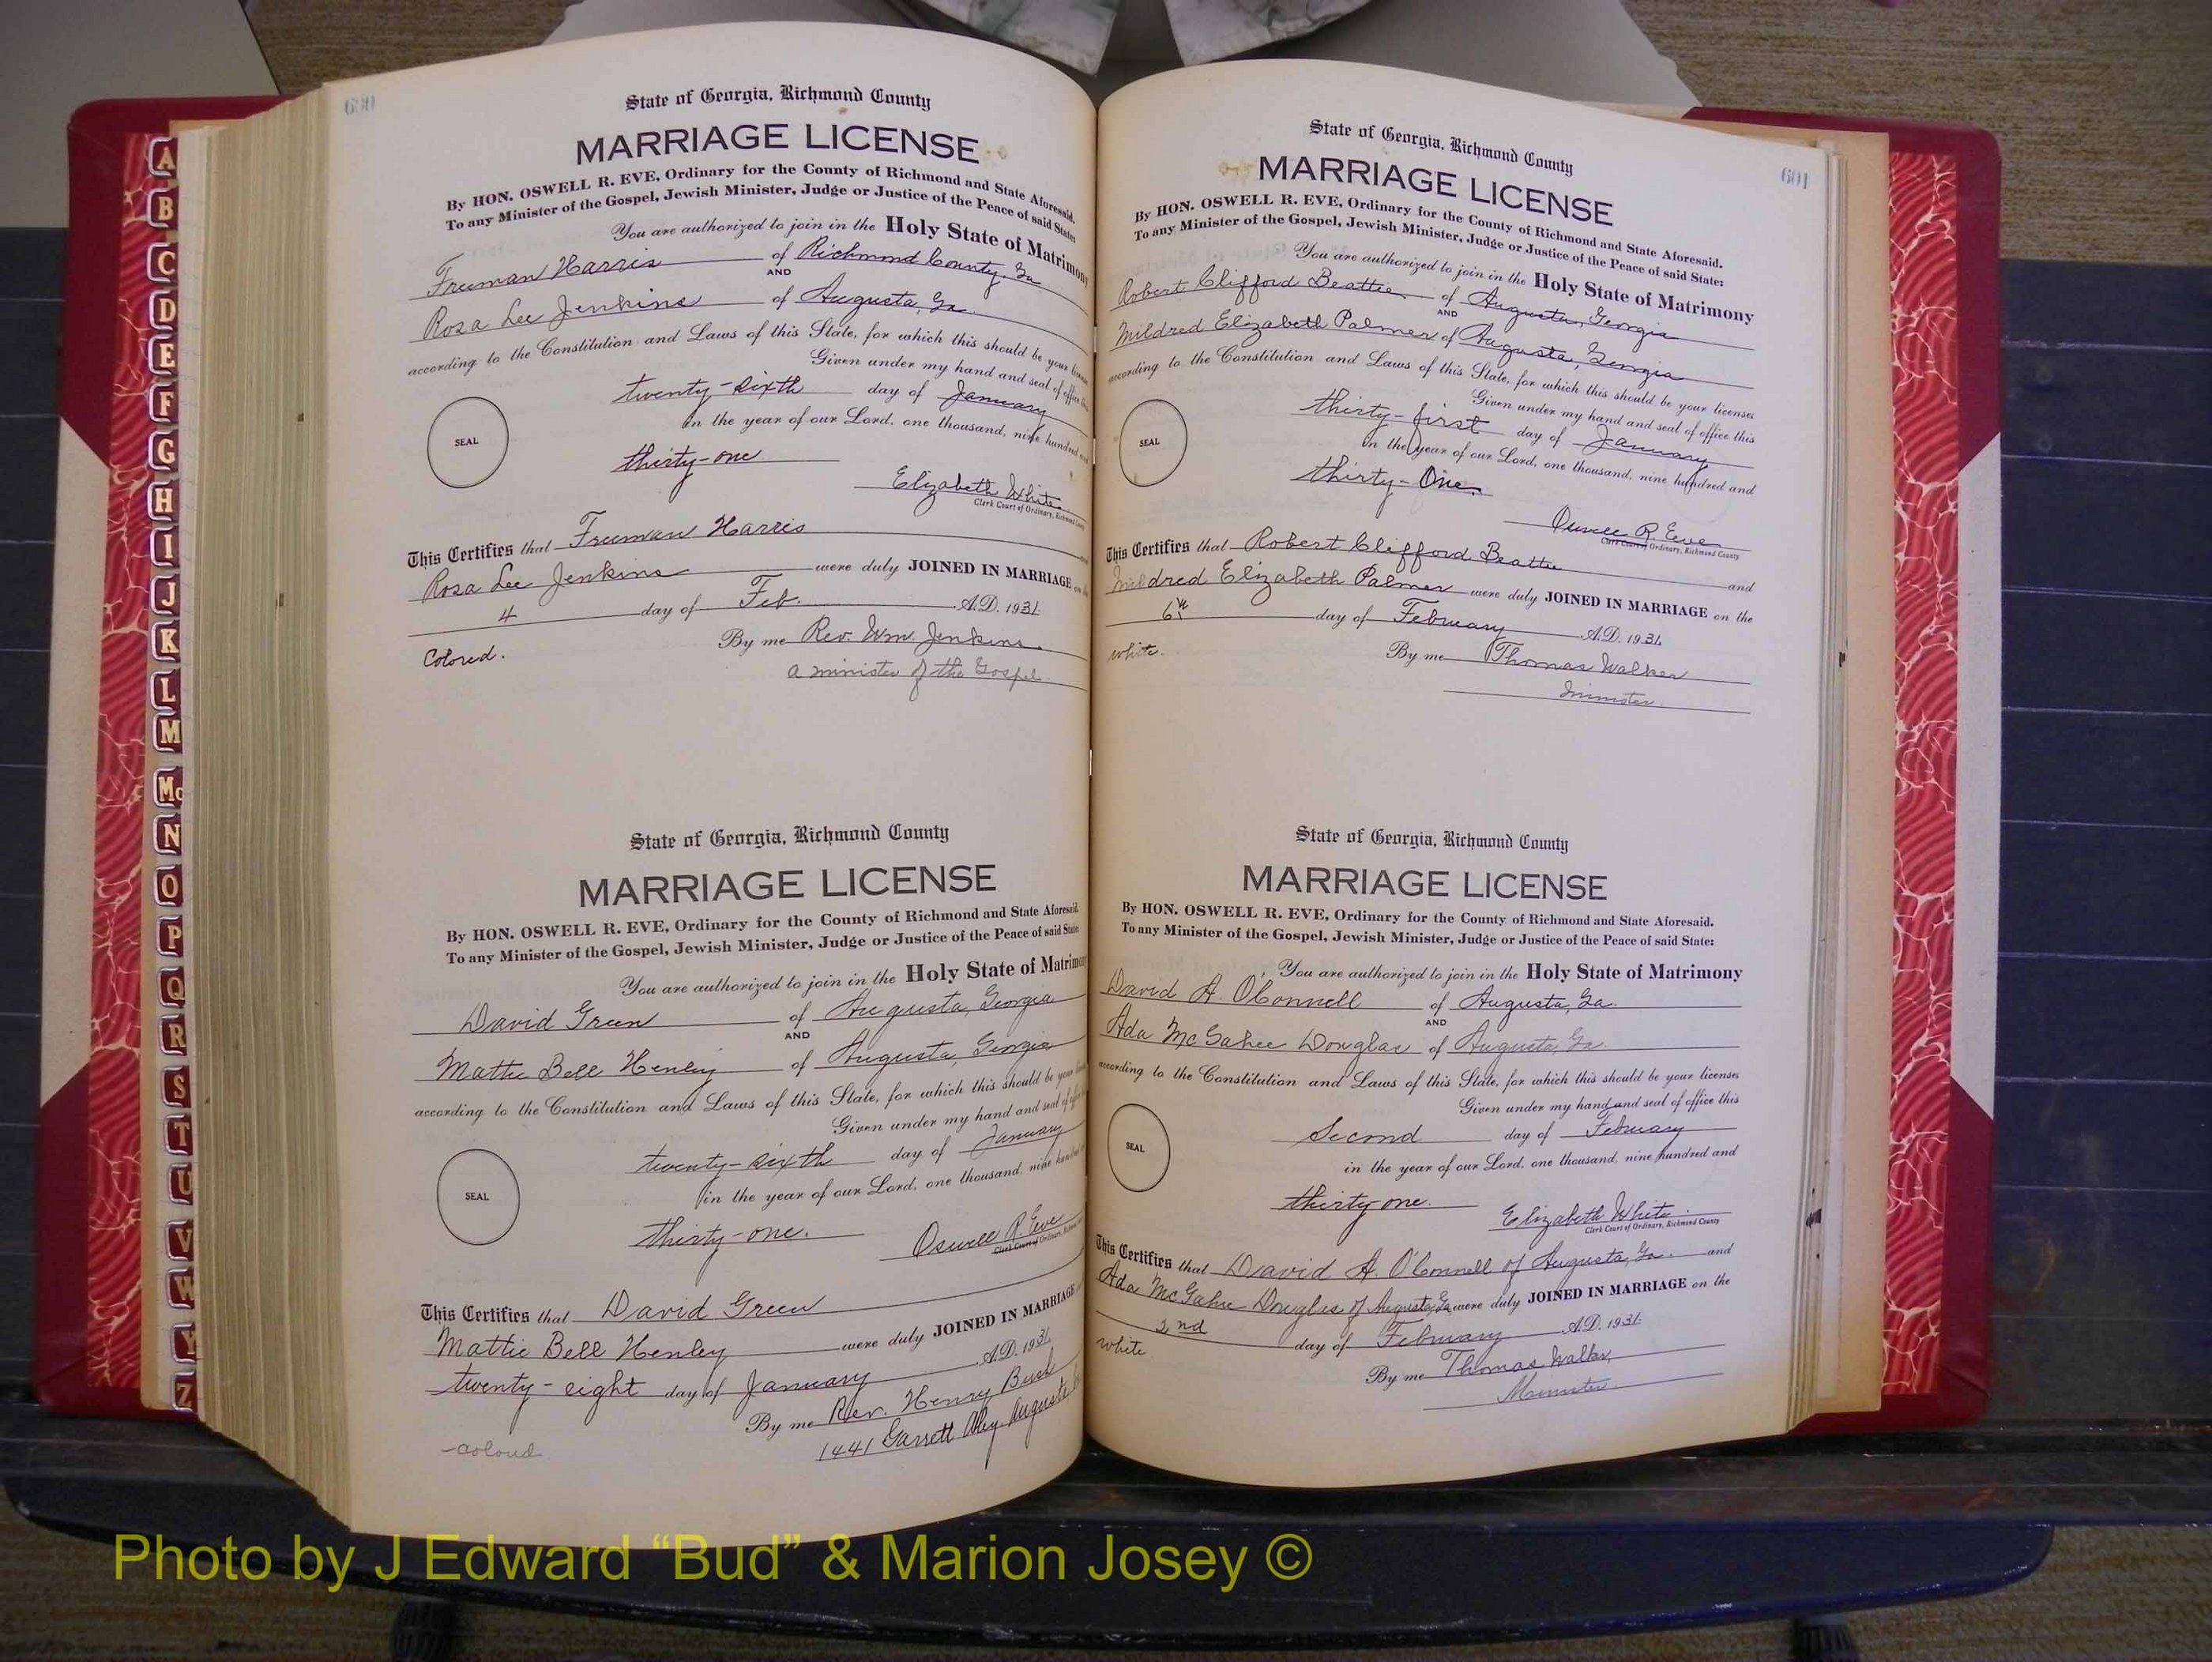 A
B
C
D
E
F
G
H
I
J
K
L
M
Mc
N
O
P
Q
R
S
T
U
V
W
Y
Z
600
State of Georgia, Richmond County
MARRIAGE LICENSE
By HON. OSWELL R. EVE, Ordinary for the County of Richmond and State Aforesaid.
To any Minister of the Gospel, Jewish Minister, Judge or Justice of the Peace of said State:
You are authorized to join in the Holy State of Matrimony
Freeman Harris of Richmond County, Ga
AND
Rosa Lee Jenkins of Augusta, Ga.
according to the Constitution and Laws of this State, for which this should be your
Given under my hand and seal of office
twenty-sixth day of January
in the year of our Lord, one thousand, nine hundred
SEAL
thirty-one
Elizabeth White
Clerk Court of Ordinary, Richmond County
This Certifies that Freeman Harris
Rosa Lee Jenkins were duly JOINED IN MARRIAGE on
4 day of Feb. A.D. 1931.
By me Rev. Wm. Jenkins
Colored.
a minister of the Gospel.
State of Georgia, Richmond County
MARRIAGE LICENSE
By HON. OSWELL R. EVE, Ordinary for the County of Richmond and State Aforesaid.
To any Minister of the Gospel, Jewish Minister, Judge or Justice of the Peace of said State
You are authorized to join in the Holy State of Matrimony
David Green of Augusta, Georgia
AND
Mattie Bell Henley of Augusta, Georgia
according to the Constitution and Laws of this State, for which this should be your
Given under my hand and seal of
twenty-sixth day of January
in the year of our Lord, one thousand, nine hundred
SEAL
thirty-one.
Oswell R. Eve
Clerk Court of Ordinary,
This Certifies that David Green
Mattie Bell Henley were duly JOINED IN MARRIAGE
twenty-eight day of January A.D. 1931.
By me Rev. Henry Bush
1441 Garrett Aley Augusta
-colord
601
State of Georgia, Richmond County
MARRIAGE LICENSE
By HON. OSWELL R. EVE, Ordinary for the County of Richmond and State Aforesaid.
To any Minister of the Gospel, Jewish Minister, Judge or Justice of the Peace of said State:
You are authorized to join in the Holy State of Matrimony
Robert Clifford Beattie of Augusta, Georgia
AND
Mildred Elizabeth Palmer of Augusta, Georgia
according to the Constitution and Laws of this State, for which this should be your licenses
Given under my hand and seal of office this
thirty-first day of January
in the year of our Lord, one thousand, nine hundred and
SEAL
thirty-One.
Oswell R. Eve
Clerk Court of Ordinary, Richmond County
This Certifies that Robert Clifford Beattie and
Mildred Elizabeth Palmer were duly JOINED IN MARRIAGE on the
6th day of February A.D. 1931.
white.
By me Thomas Walker
minister.
State of Georgia, Richmond County
MARRIAGE LICENSE
By HON. OSWELL R. EVE, Ordinary for the County of Richmond and State Aforesaid.
To any Minister of the Gospel, Jewish Minister, Judge or Justice of the Peace of said State:
You are authorized to join in the Holy State of Matrimony
David A. O'Connell of Augusta, Ga.
AND
Ada McGahee Douglas of Augusta, Ga.
according to the Constitution and Laws of this State, for which this should be your licenses
Given under my hand and seal of office this
Second day of February
SEAL
in the year of our Lord, one thousand, nine hundred and
thirty one.
Elizabeth White.
Clerk Court of Ordinary, Richmond County
This Certifies that David A. O'Connell of Augusta, Ga. and
Ada McGahee Douglas of Augusta, Ga were duly JOINED IN MARRIAGE on the
2nd day of February A.D. 1931.
white
By me Thomas Walker,
Minister.
Photo by J Edward “Bud” & Marion Josey ©